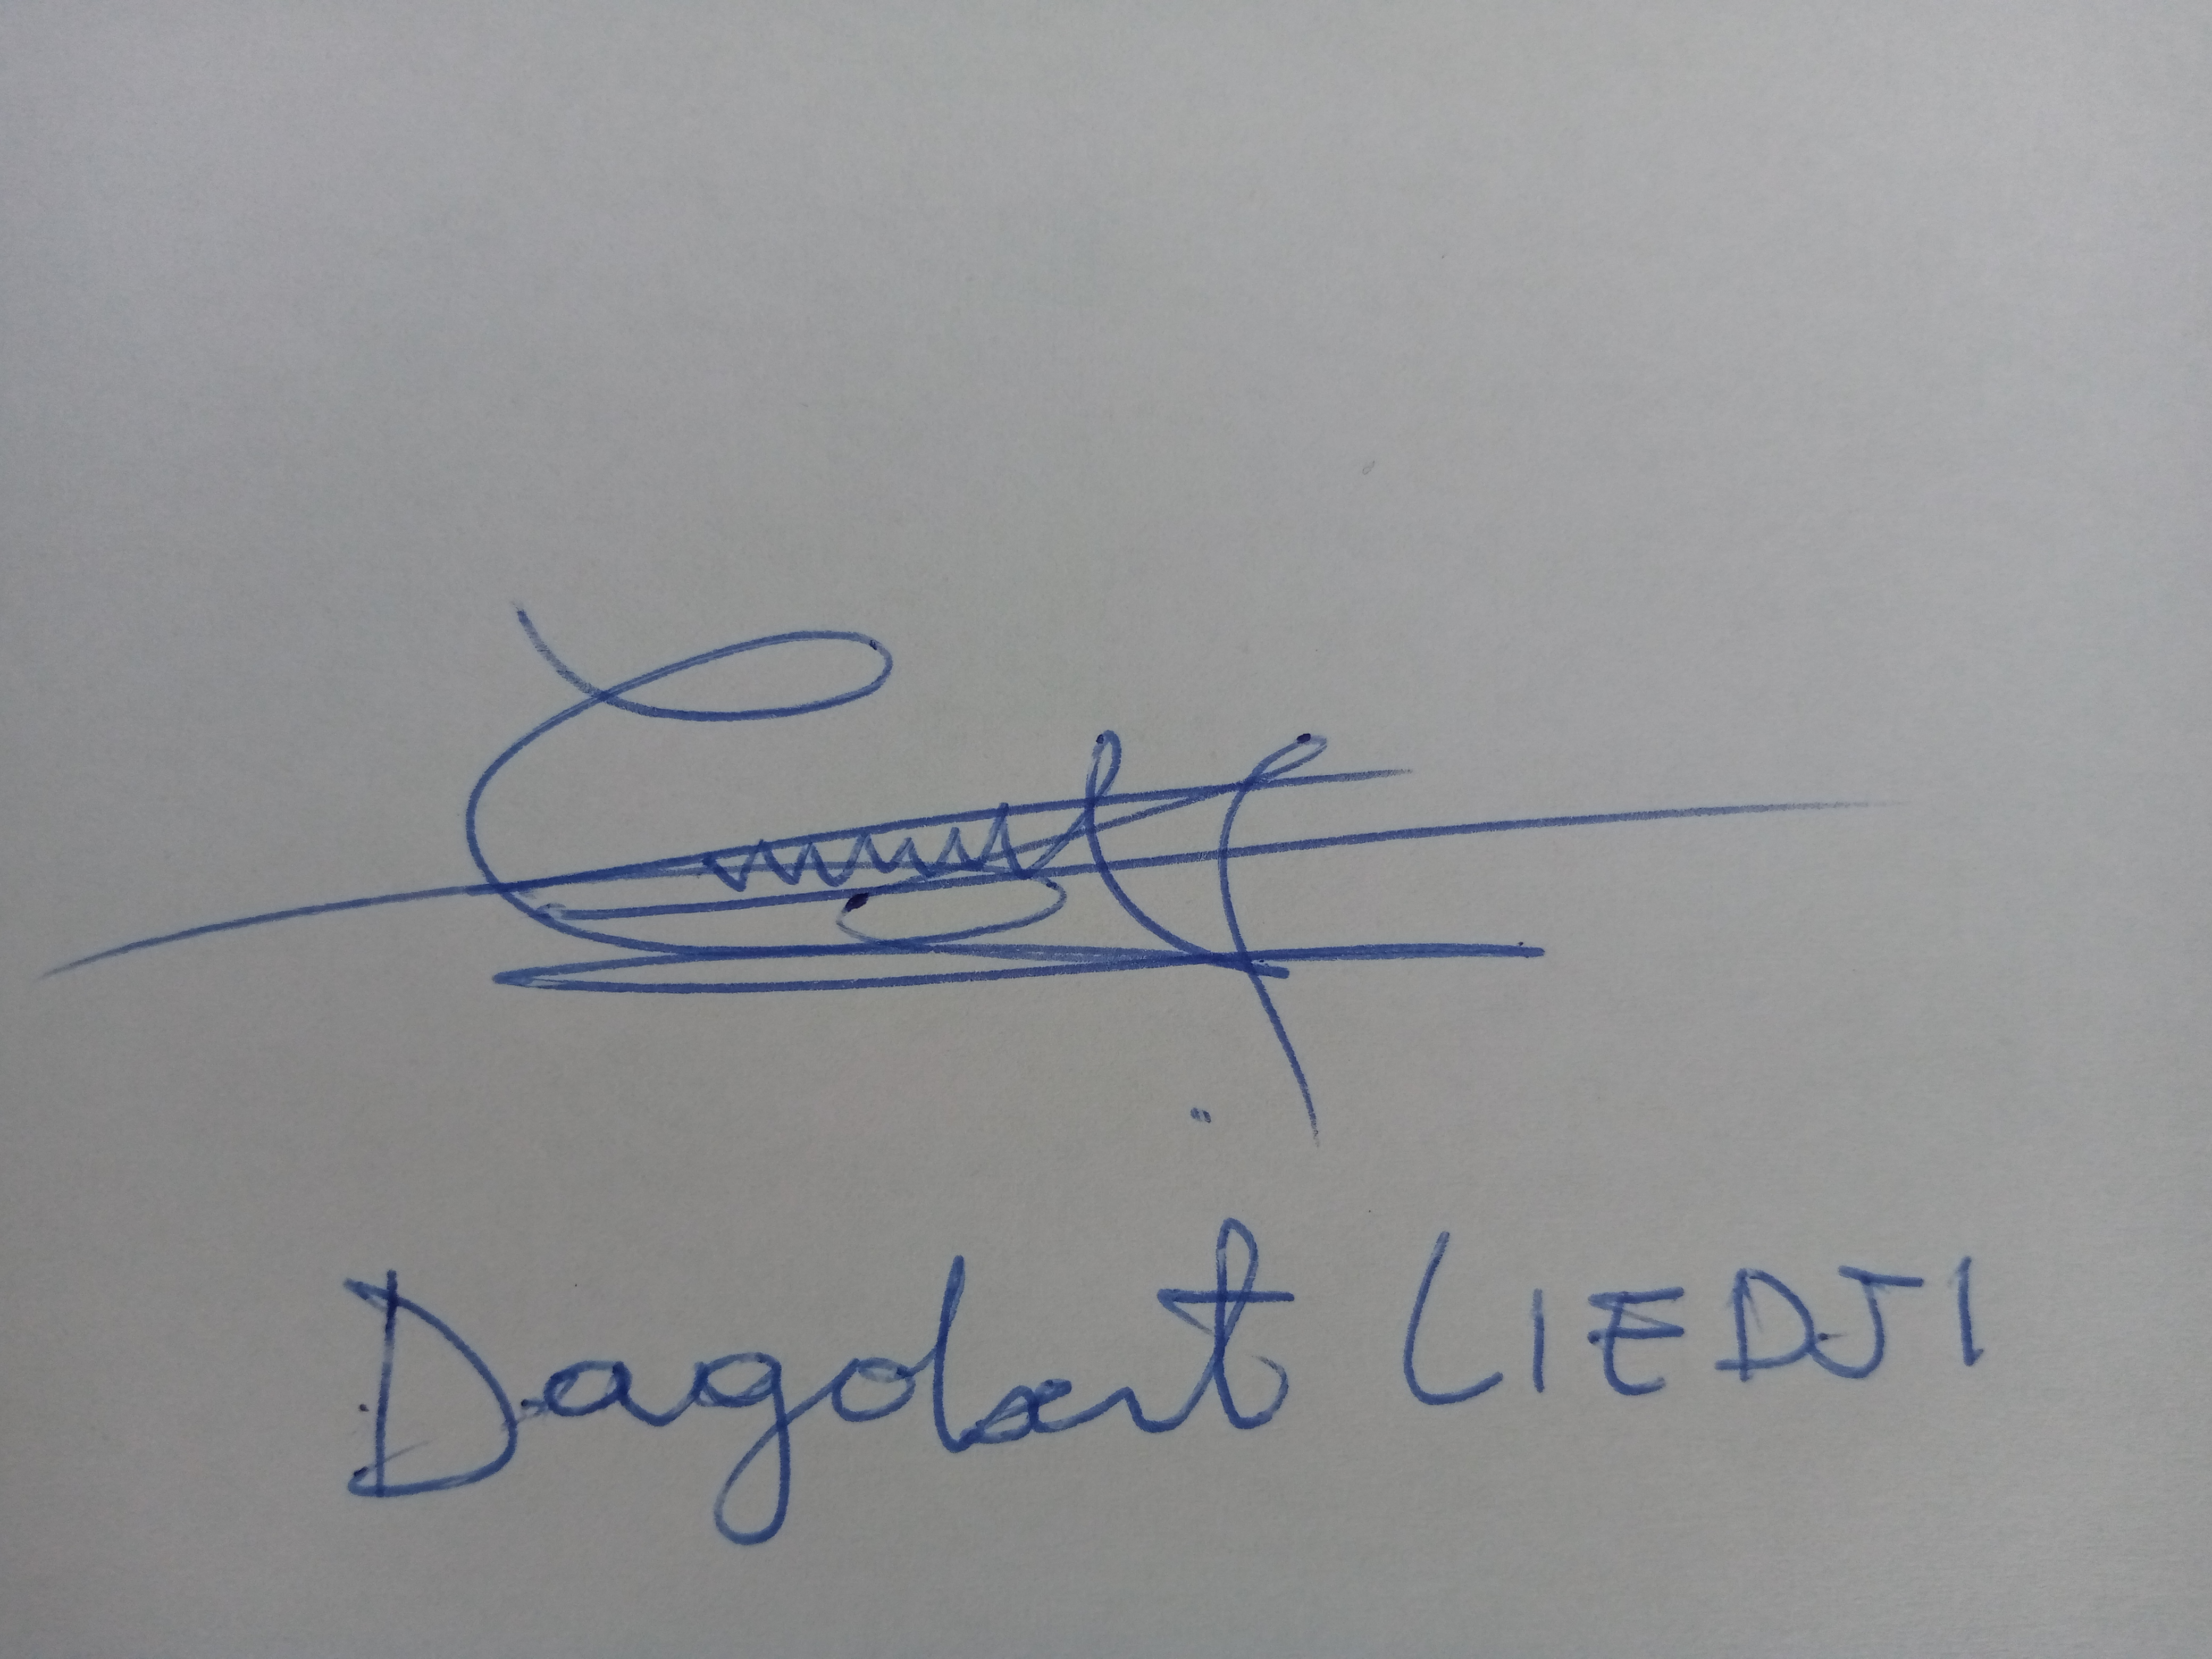 Dagobert LIEDJI